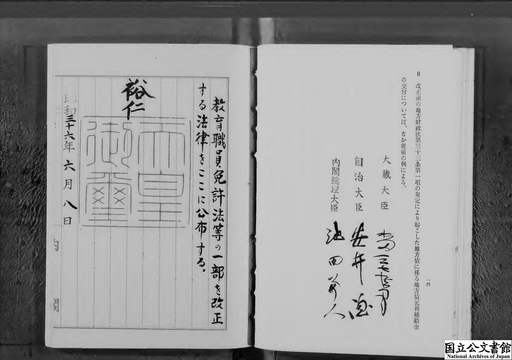 8 改正前の地方財政法第三十三条第一項の規定により起こした地方債に係る地方債元利補給金
の交付については、なお従前の例による。
大蔵大臣 水田三喜男
自治大臣 安井謙
内閣総理大臣 池田勇人
教育職員免許法等の一部を改正
する法律をここに公布する。
裕仁
天皇
御璽
昭和三十六年六月八日
国立公文書館
National Archives of Japan